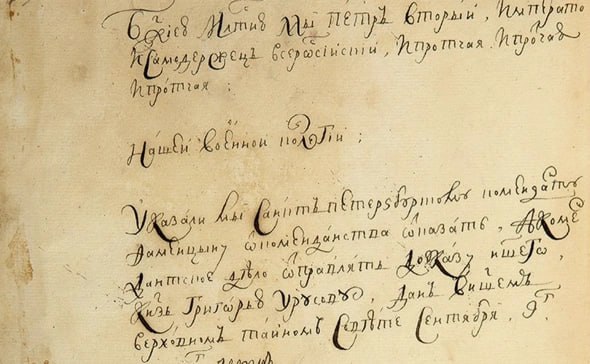 Бжиею Млтию Мы Петръ Вторый, Императо
и Самодержецъ всеросійскій, и протчая и протчая
и протчая:
Нашей военной колегіи:
Указали мы Санктъ петерзбургскому коменданту
от комендантства отказать, а коме
дантское дѣло отправлять до указу нашего,
Кнзь Григорью Урусову, данъ в нашемъ
верховномъ тайномъ Совѣте Сентября, 9г